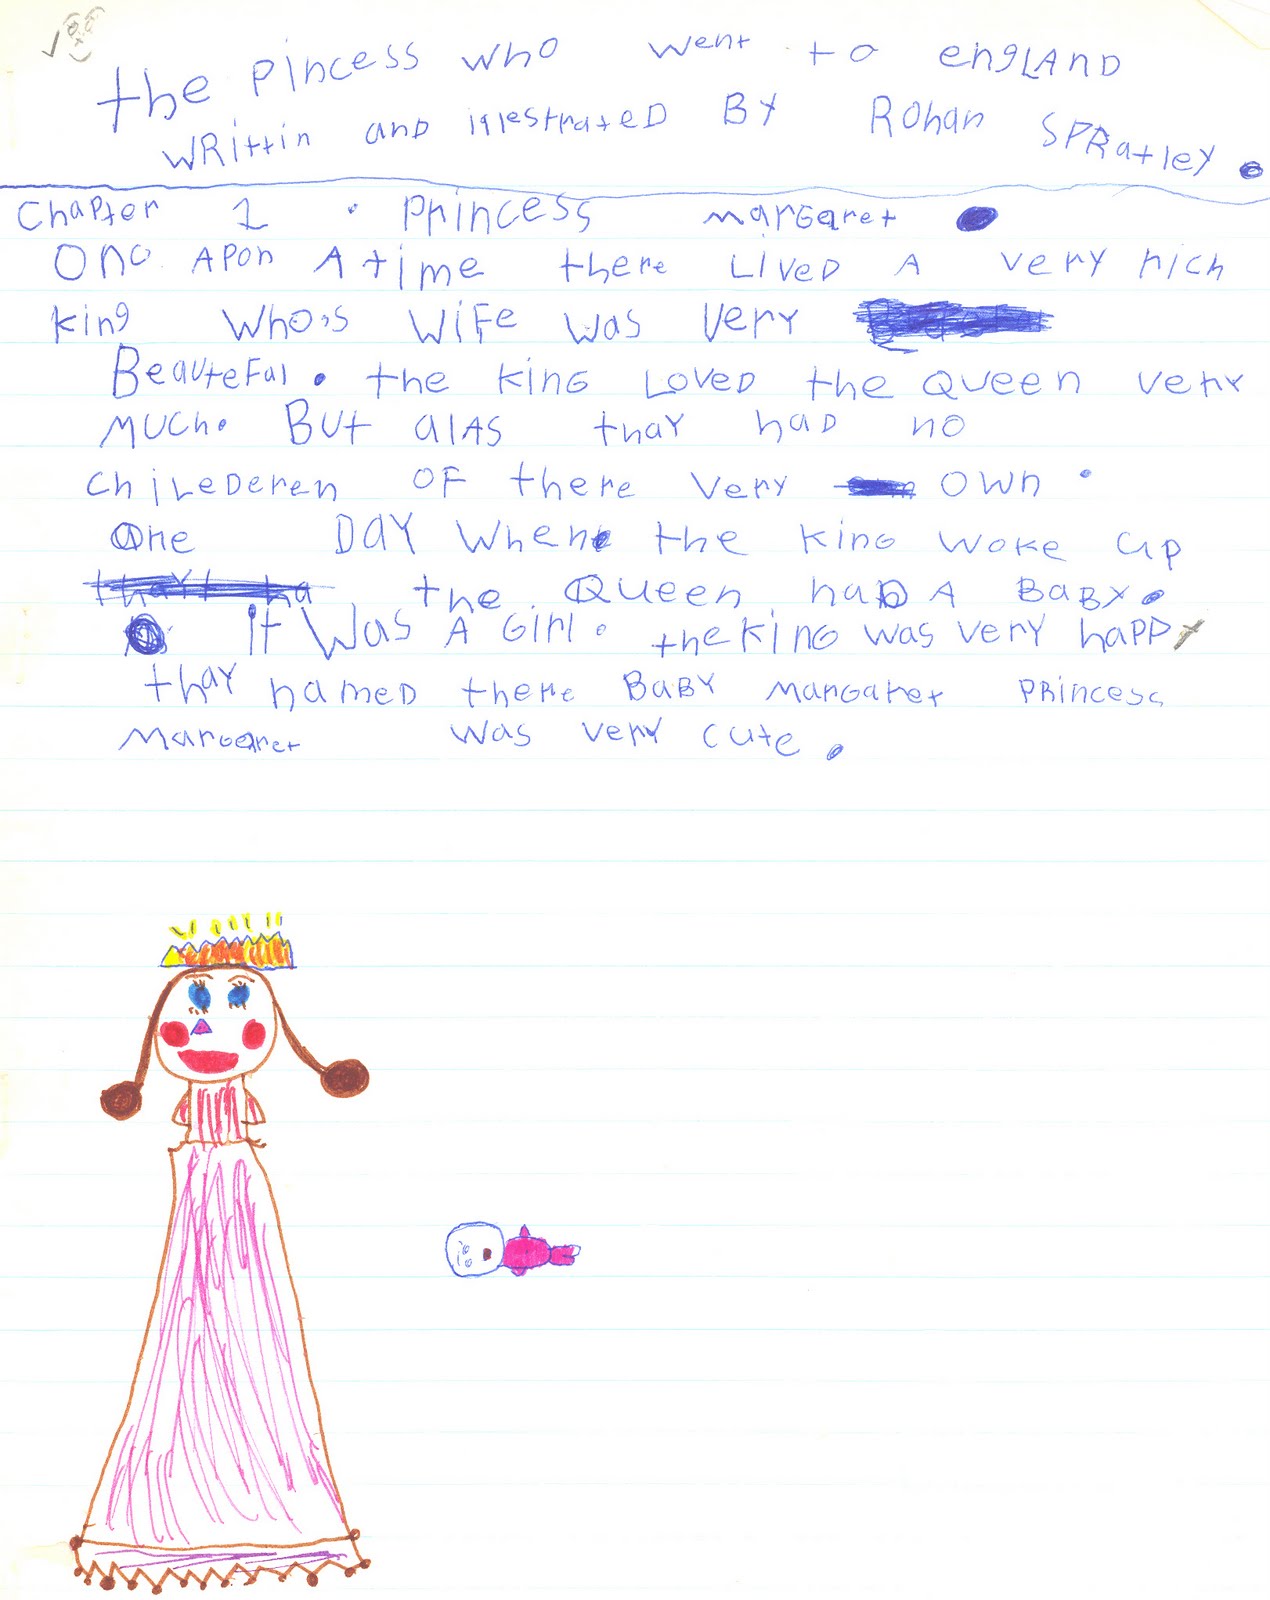 the PINCESS who went to engLAND
WRittin and illestrateD BY ROhan SPRatleY.
Chapter 1 . PRINCESS margaret.
Onc Apon A time there Lived A very rich
king who,s wife was very
Beauteful. the king Loved the Queen very
much. But alas thay had no
chilederen of there very own.
One Day when the king woke up
the Queen had A BaBy.
It Was A Girl. the king was very happy
thay named there BaBY Margaret PRincess
Margaret was very cute.